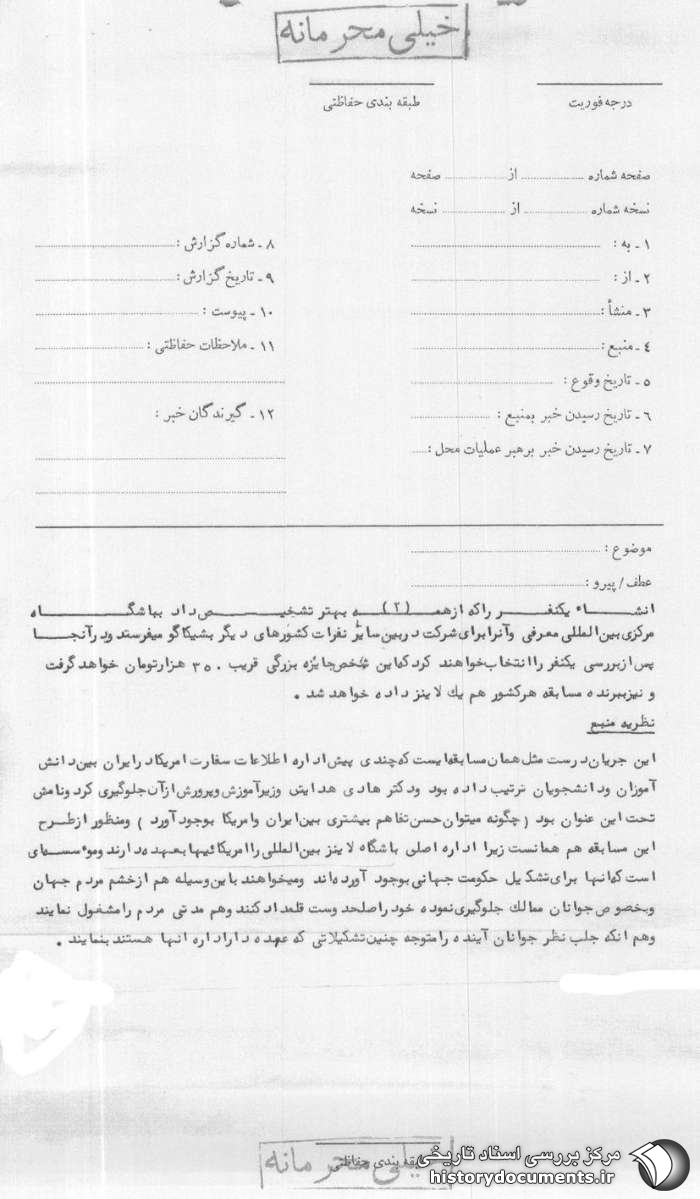 خیلی محرمانه
درجه فوریت
طبقه بندی حفاظتی
صفحه شماره .......... از .......... صفحه
نسخه شماره .......... از .......... نسخه
۱ ـ به :
۲ ـ از :
۳ ـ منشأ :
۴ ـ منبع :
۵ ـ تاریخ وقوع :
۶ ـ تاریخ رسیدن خبر بمنبع :
۷ ـ تاریخ رسیدن خبر برهبر عملیات محل :
۸ ـ شماره گزارش :
۹ ـ تاریخ گزارش :
۱۰ ـ پیوست :
۱۱ ـ ملاحظات حفاظتی :
۱۲ ـ گیرندگان خبر :
موضوع :
عطف / پیرو :
انشاء یکنفر را که از همه (۲) بهتر تشخیص داد بباشگاه
مرکزی بین المللی معرفی و آنرا برای شرکت در بین سایر نفرات کشورهای دیگر بشیکاگو میفرستد و در آنجا
پس از بررسی یکنفر را انتخاب خواهند کرد که این شخص جایزه بزرگی قریب ۳۵۰ هزار تومان خواهد گرفت
و نیز ببرنده مسابقه هر کشور هم یك لاینز داده خواهد شد .
نظریه منبع
این جریان درست مثل همان مسابقه ایست که چندی پیش اداره اطلاعات سفارت امریکا در ایران بین دانش
آموزان و دانشجویان ترتیب داده بود و دکتر هادی هدایتی وزیر آموزش و پرورش از آن جلوگیری کرد و نامش
تحت این عنوان بود ( چگونه میتوان حسن تفاهم بیشتری بین ایران و امریکا بوجود آورد ) و منظور از طرح
این مسابقه هم همانست زیرا اداره اصلی باشگاه لاینز بین المللی را امریکائیها بعهده دارند و موسسه ای
است که آنها برای تشکیل حکومت جهانی بوجود آورده اند و میخواهند باین وسیله هم از خشم مردم جهان
و بخصوص جوانان ممالك جلوگیری نموده خود را صلحدوست قلمداد کنند و هم مدتی مردم را مشغول نمایند
و هم آنکه جلب نظر جوانان آینده را متوجه چنین تشکیلاتی که عهده دار اداره آنها هستند بنمایند .
طبقه بندی حفاظتی
خیلی محرمانه
مرکز بررسی اسناد تاریخی
historydocuments.ir